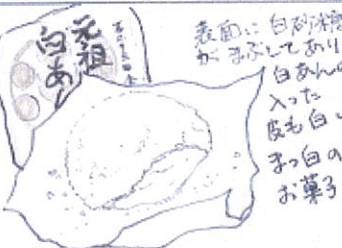 元祖
白あん
表面に白砂糖
がまぶしてあり
白あんの
入った
皮も白い
まっ白の
お菓子